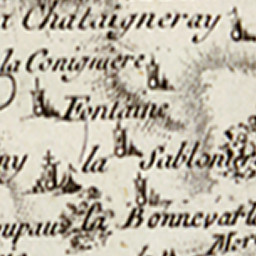 la Chataigneray
la Conigniere
Fontaine
ny la Sablonier
oupau la Bonnevall
Mer